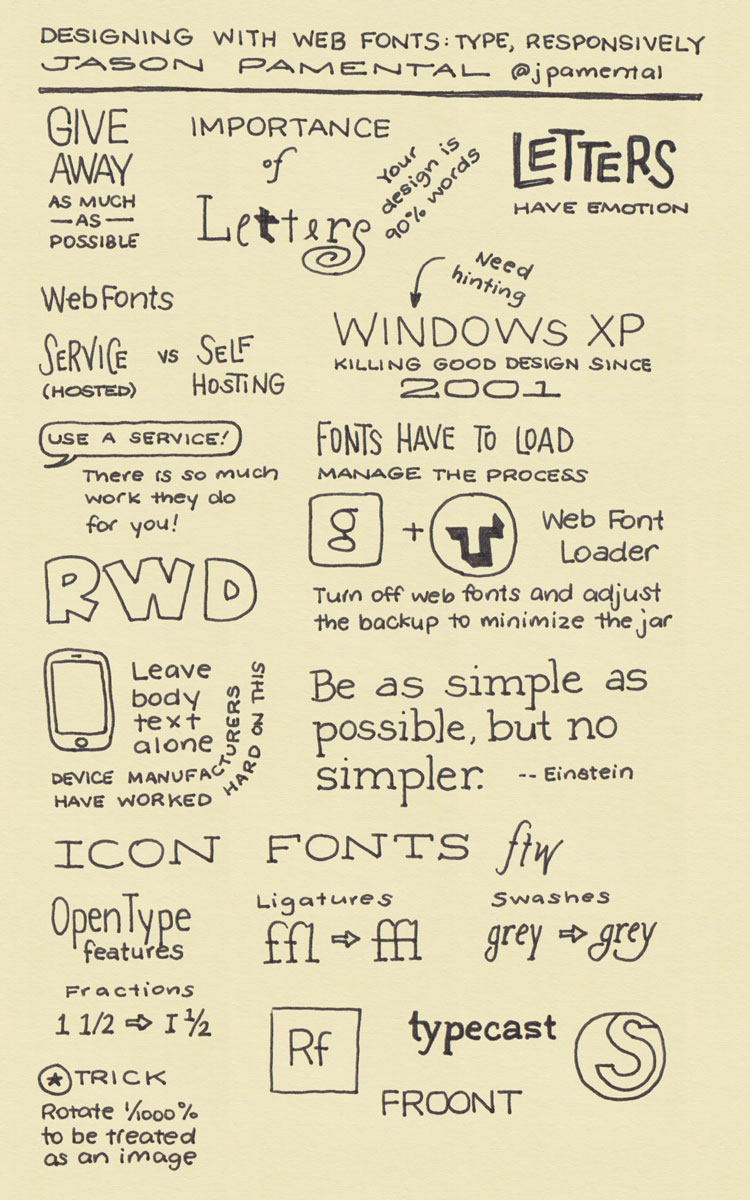 DESIGNING WITH WEB FONTS: TYPE, RESPONSIVELY
JASON PAMENTAL @jpamental
GIVE
AWAY
AS MUCH
— AS —
POSSIBLE
IMPORTANCE
of
Letters
Your
design is
90% words
LETTERS
HAVE EMOTION
Web Fonts
SERVICE
(HOSTED)
vs
SELF
HOSTING
Need
hinting
WINDOWS XP
KILLING GOOD DESIGN SINCE
2001
USE A SERVICE!
There is so much
work they do
for you!
FONTS HAVE TO LOAD
MANAGE THE PROCESS
g + T
Web Font
Loader
Turn off web fonts and adjust
the backup to minimize the jar
RWD
Leave
body
text
alone
DEVICE MANUFACTURERS
HAVE WORKED HARD ON THIS
Be as simple as
possible, but no
simpler.
-- Einstein
ICON FONTS ftw
OpenType
features
Ligatures
ffl ⇨ ffl
Swashes
grey ⇨ grey
Fractions
1 1/2 ⇨ 1 ½
Rf
typecast
S
FROONT
★ TRICK
Rotate 1/1000%
to be treated
as an image